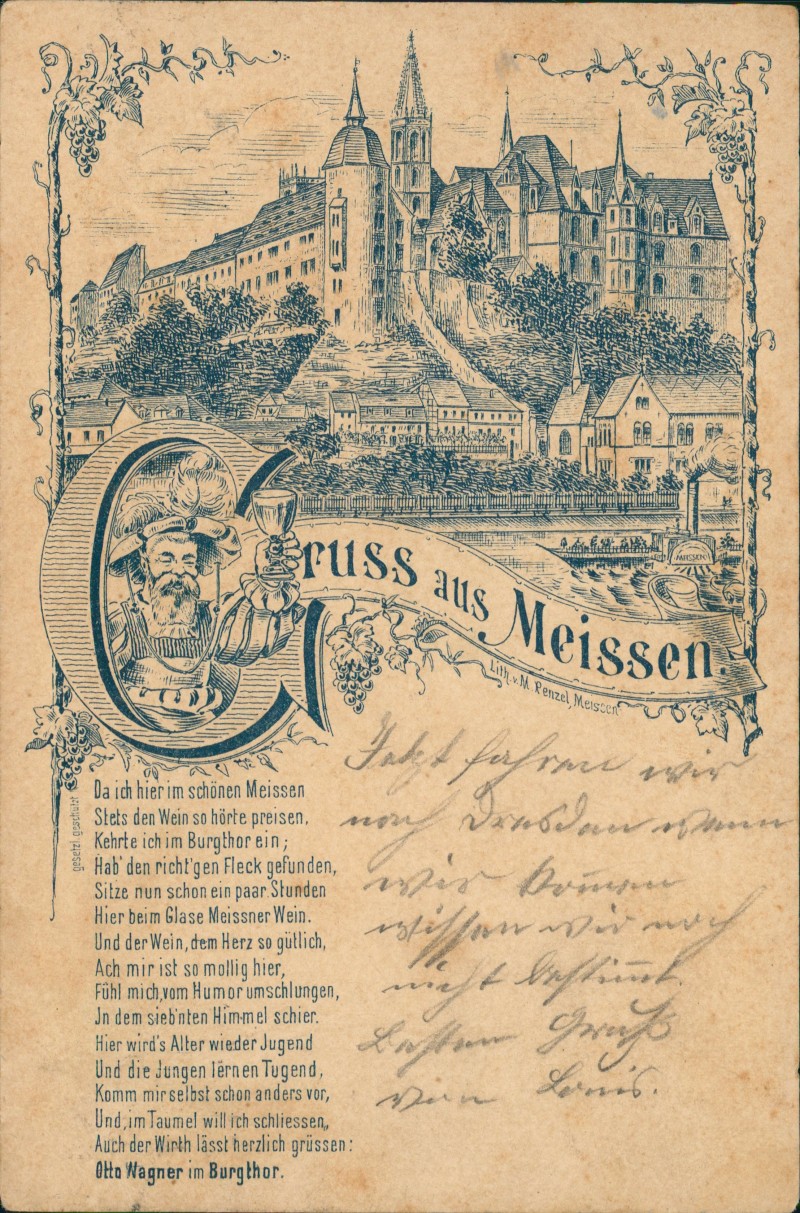 MEISSEN
Gruss aus Meissen.
Lith. v. M. Renzel, Meissen
gesetzl. geschützt
Da ich hier im schönen Meissen
Stets den Wein so hörte preisen,
Kehrte ich im Burgthor ein;
Hab' den richt'gen Fleck gefunden,
Sitze nun schon ein paar Stunden
Hier beim Glase Meissner Wein.
Und der Wein, dem Herz so gütlich,
Ach mir ist so mollig hier,
Fühl mich, vom Humor umschlungen,
Jn dem sieb'nten Himmel schier.
Hier wird's Alter wieder Jugend
Und die Jungen lernen Tugend,
Komm mir selbst schon anders vor,
Und, im Taumel will ich schliessen,
Auch der Wirth lässt herzlich grüssen:
Otto Wagner im Burgthor.
Jetzt fahren wir
nach Dresden wann
wir kom̅en
wissen wir noch
nicht bestim̅t.
Besten Gruß
von Louis.